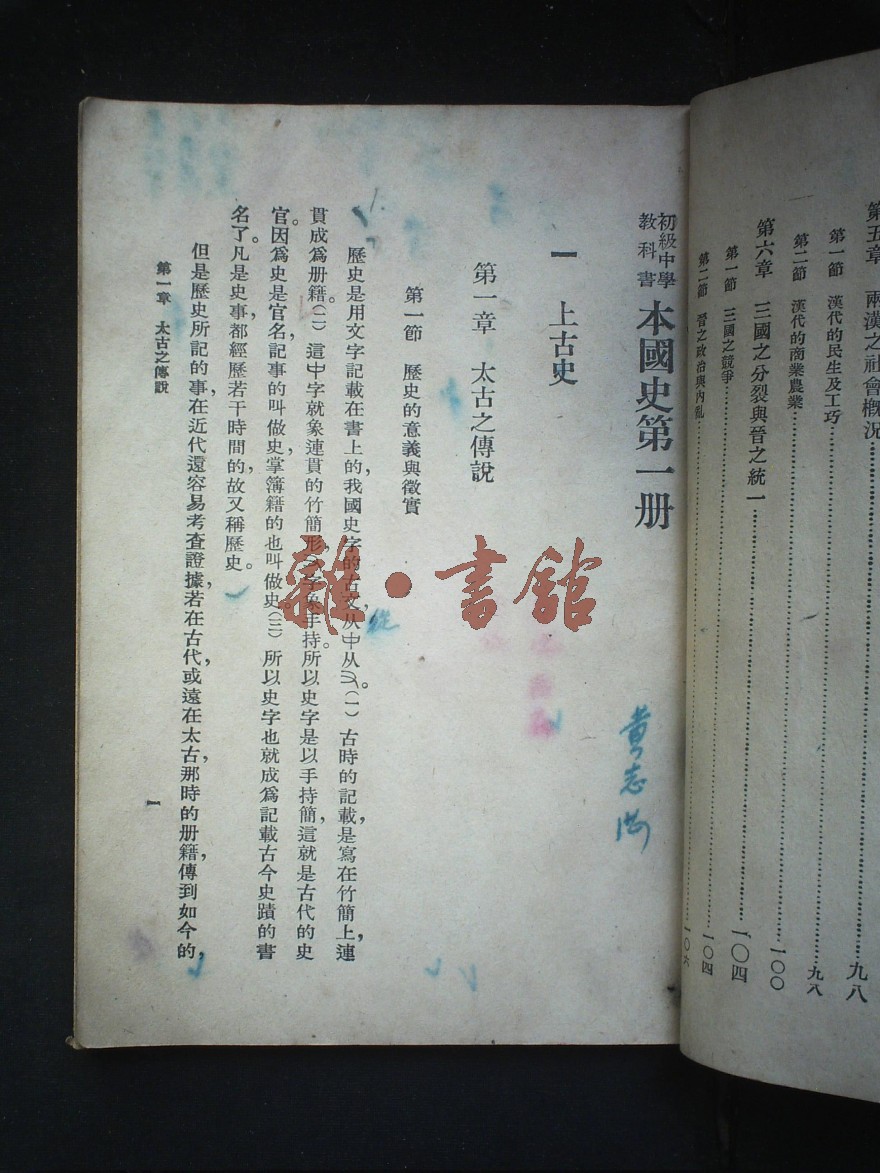 第五章　兩漢之社會概況……九八
第一節　漢代的民生及工巧……九八
第二節　漢代的商業農業……一〇〇
第六章　三國之分裂與晉之統一……一〇四
第一節　三國之競爭……一〇四
第二節　晉之政治與內亂……一〇六
初級中學教科書　本國史第一册
一　上古史
第一章　太古之傳說
第一節　歷史的意義與徵實
歷史是用文字記載在書上的，我國史字的古文，从中从又。（一）古時的記載，是寫在竹簡上，連
貫成爲册籍。（二）這中字就象連貫的竹簡形，又字象手持。所以史字是以手持簡，這就是古代的史
官。因爲史是官名，記事的叫做史，掌簿籍的也叫做史。（三）所以史字也就成爲記載古今史蹟的書
名了。凡是史事，都經歷若干時間的，故又稱歷史。
但是歷史所記的事，在近代還容易考查證據，若在古代，或遠在太古，那時的册籍，傳到如今的，
第一章　太古之傳說
一
從
黄志
雜·書館